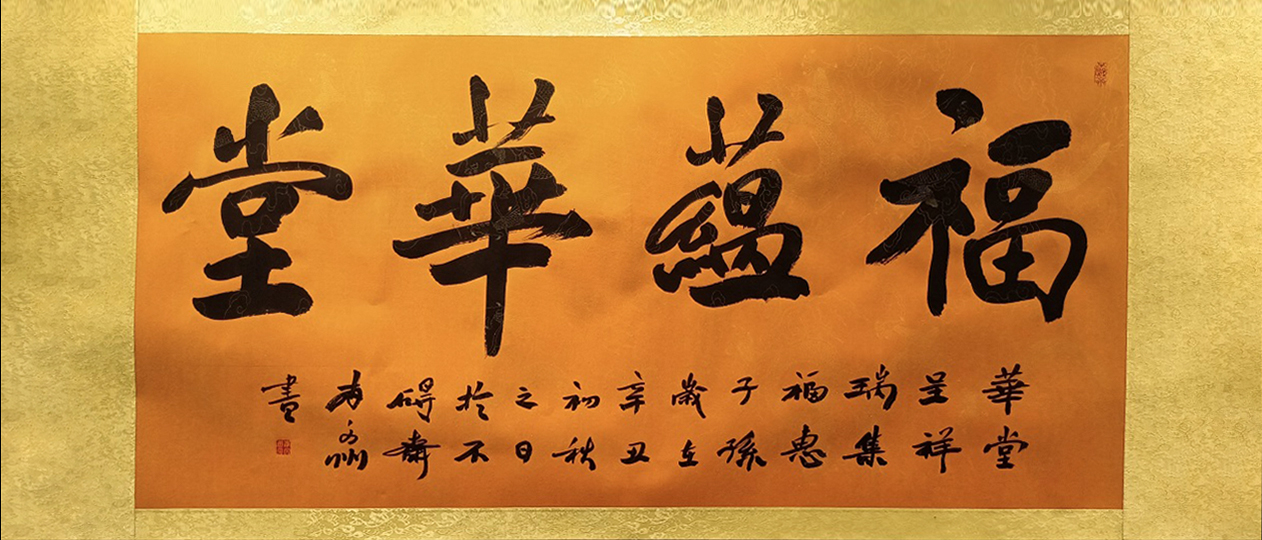 福蘊華堂
華堂
呈祥
瑞集
福惠
子孫
歲在
辛丑
初秋
之日
於不
礙齋
書